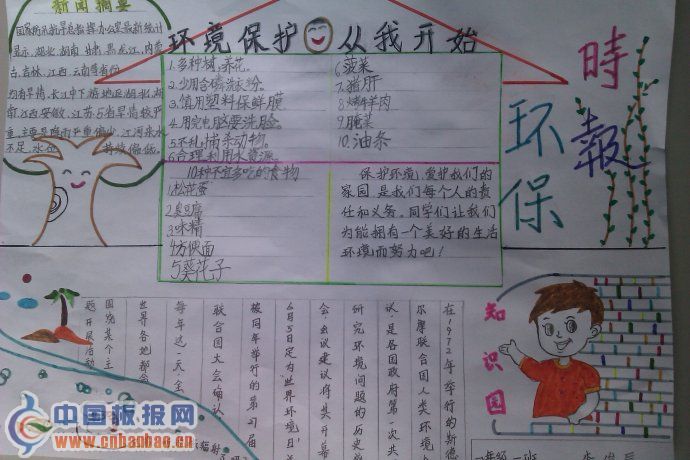 新闻摘要
国家防汛抗旱总指挥办公室最新统计
显示，湖北、湖南、甘肃、黑龙江、内蒙
古、吉林、江西、云南等省份
均有旱情，长江中下游地区湖北、湖
江西安徽、江苏、5省旱情较严
重，主要旱
不足，水
持续偏低。
环境保护 从我开始
1.多种植、养花。
2.少用含磷洗衣粉。
3.慎用塑料保鲜膜
4.用完电脑要洗脸。
5.不乱捕杀动物。
6.合理利用水资源。
10种不宜多吃的食物
1松花蛋
2臭豆腐
3味精
4方便面
5葵花子
6菠菜
7猪肝
8烤牛羊肉
9腌菜
10.油条
保护环境，爱护我们的
家园，是我们每个人的责
任和义务。同学们让我们
为能拥有一个美好的生活
环境而努力吧！
環保時報
环保
時報
知识园
在1972年举行的斯德
尔摩联合国人类环境
议，是各国政府第一次共
研究环境问题的历史
会，会议建议将其开幕
6月5日定为"世界环境日"
被同年举行的第27届
联合国大会确认
每年这一天，全
世界各地都会
围绕某个主
题开展活动
一班
中国板报网
www.cnbanbao.cn